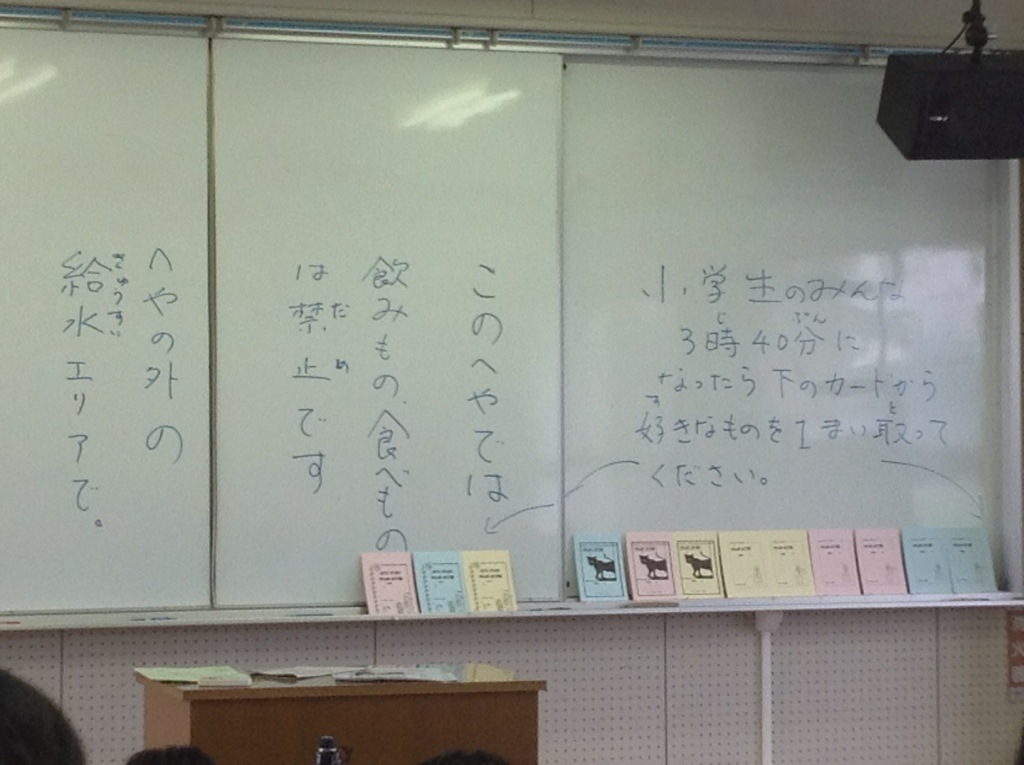 小学生のみんな
じ ぷん
3時40分に
なったら下のカードから
す と
好きなものを1まい取って
ください。
このへやでは
飲みもの、食べもの
は禁止です
だめ
へやの外の
給水エリアで。
きゅうすい